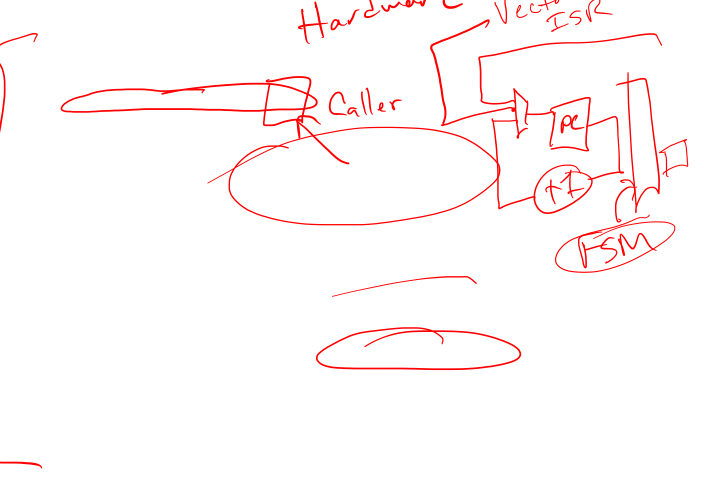 Hardware
Vect
ISR
Caller
PC
+1
FSM